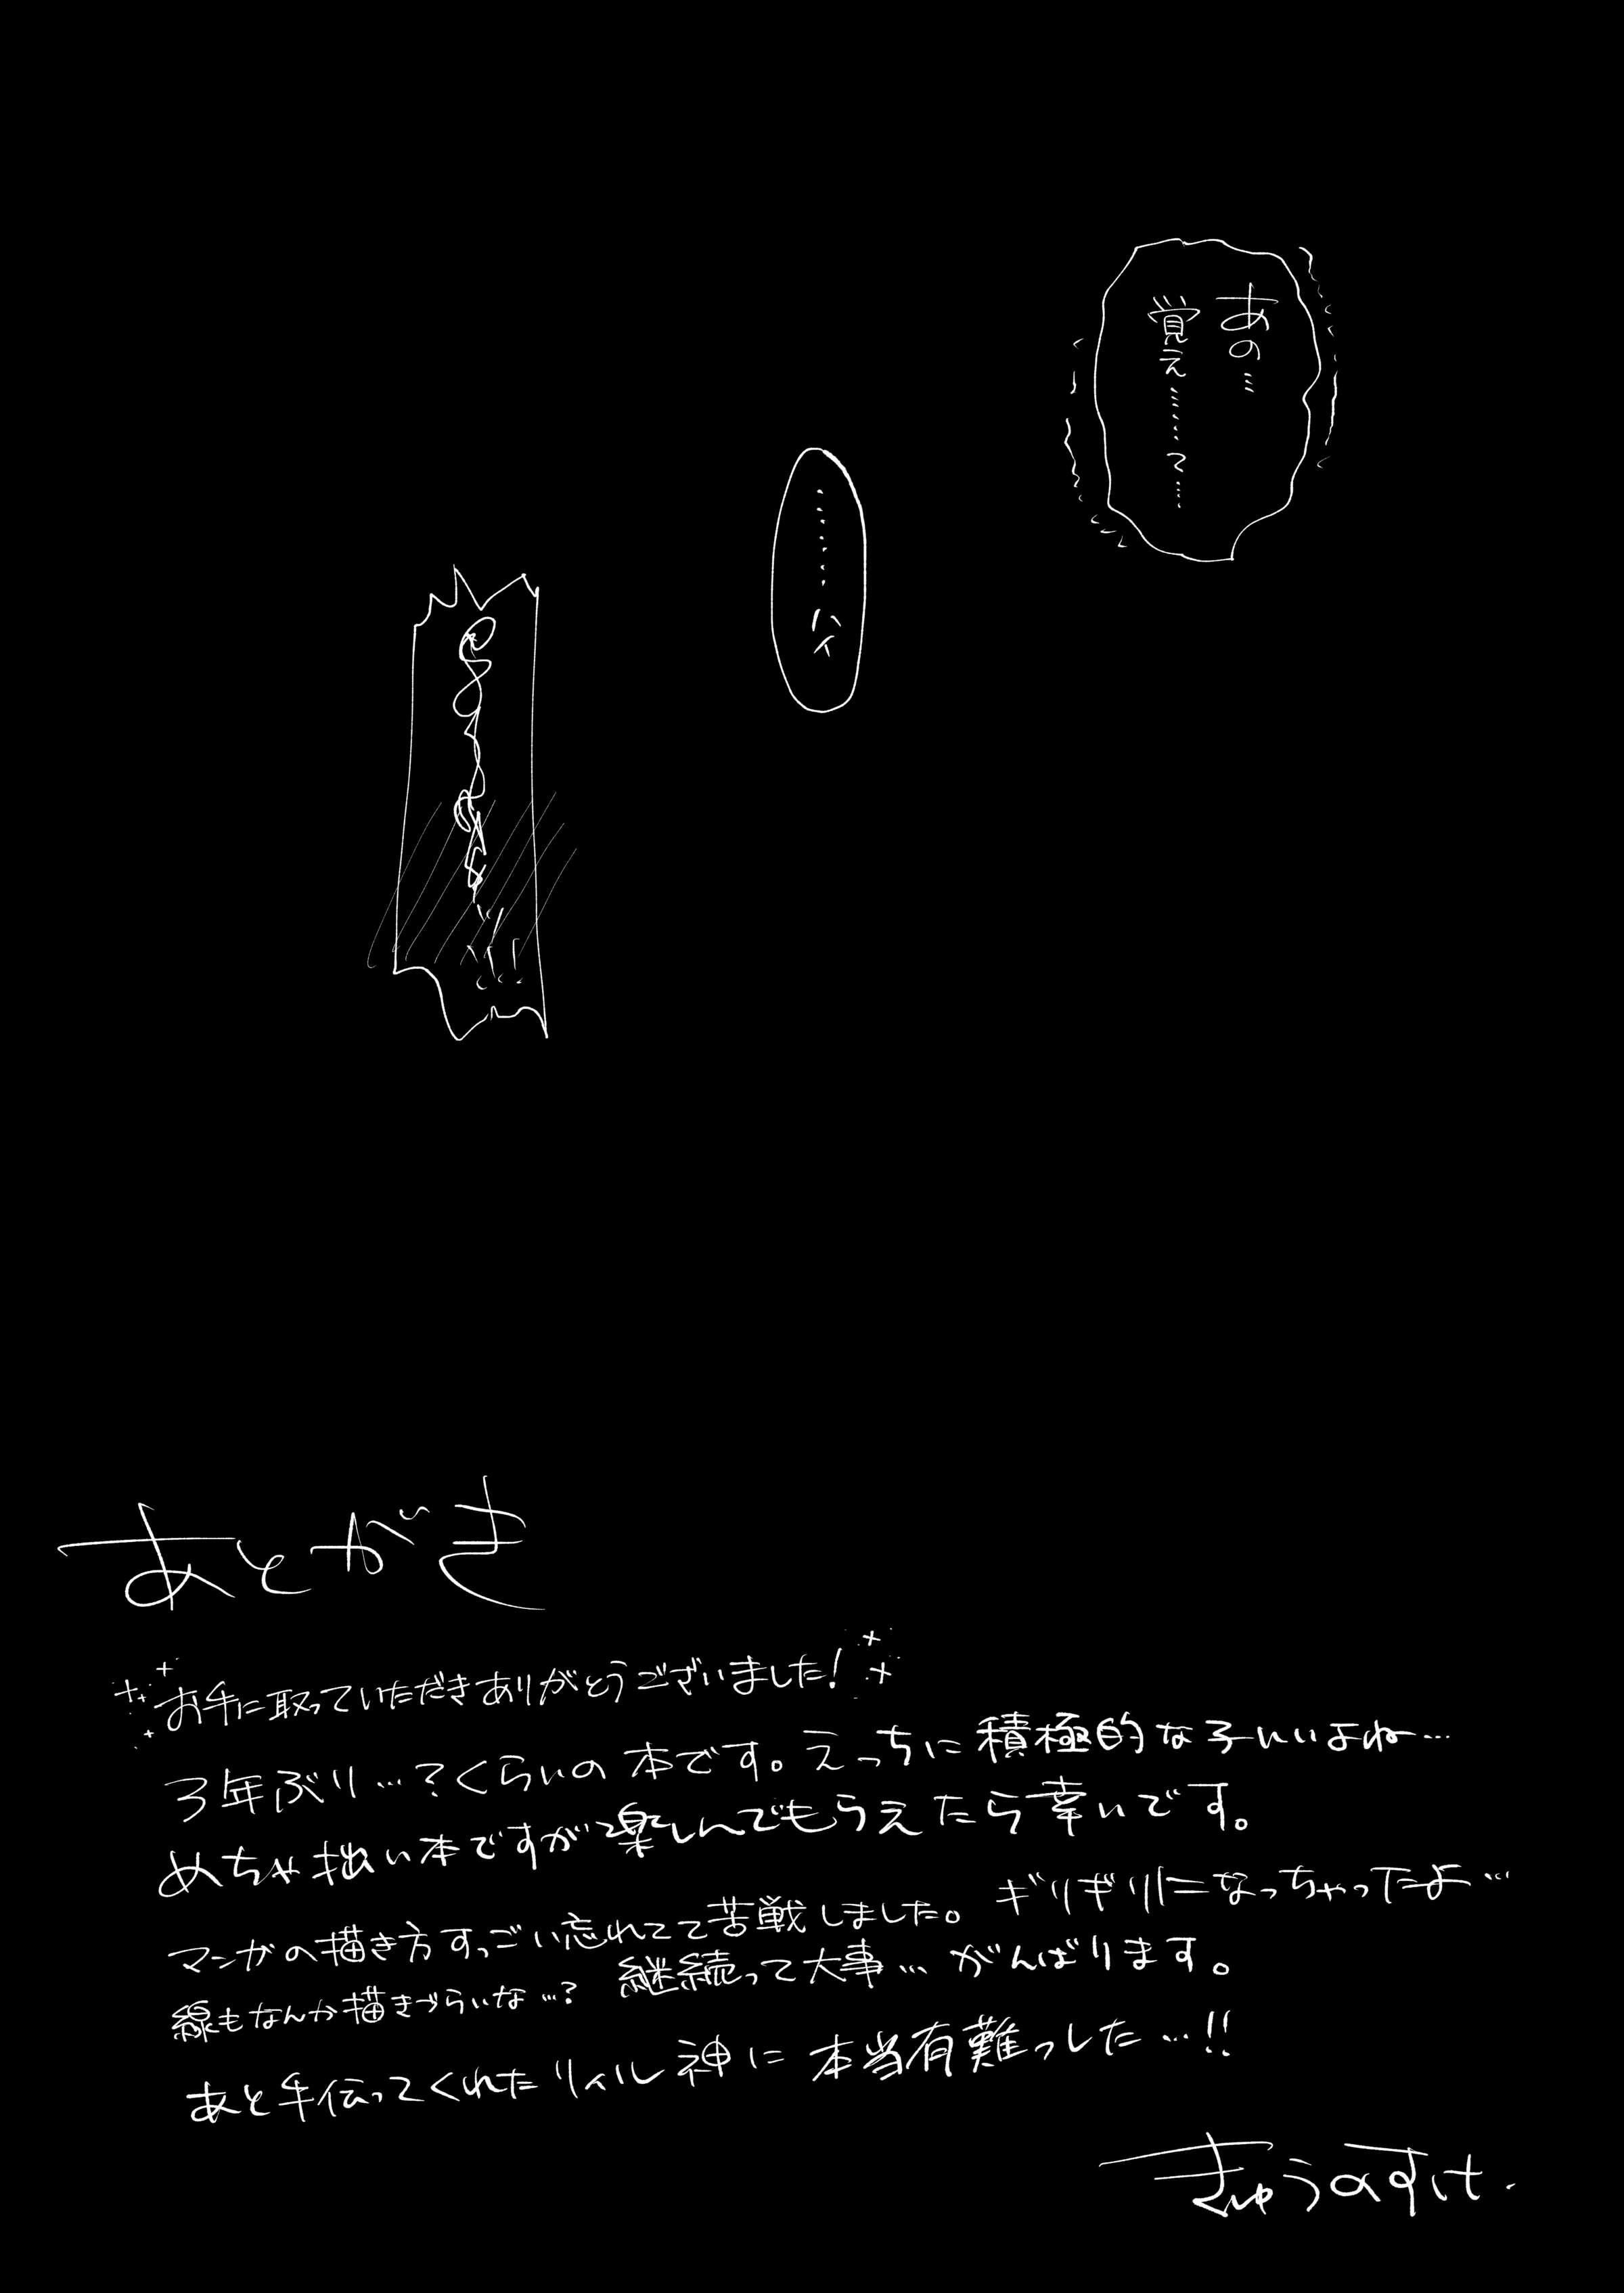 あの…
覚え………て…
………ハイ
あとがき
お手に取っていただきありがとうございました!
3年ぶり…?くらいの本です。えっちに積極的な子いいよね…
めちゃ拙い本ですが楽しんでもらえたら幸いです。
マンガの描き方すっごい忘れてて苦戦しました。ギリギリになっちゃったよ…
線もなんか描きづらいな…? 継続って大事…がんばります。
あと手伝ってくれたリィル神に本当有難っした…!!
きゅうのすけ.